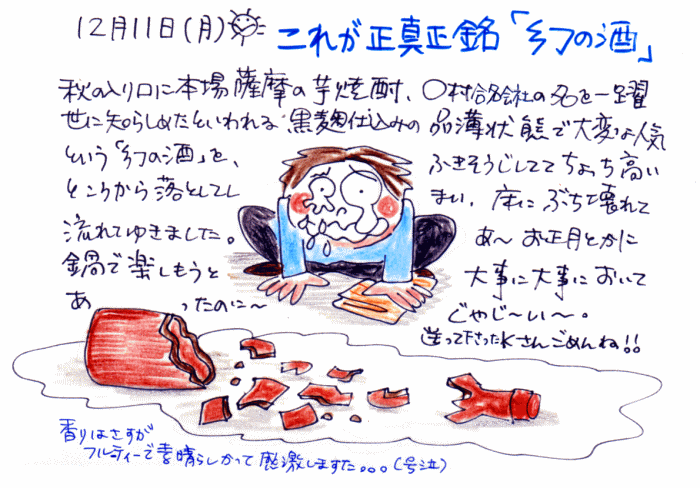 12月11日(月)
これが正真正銘「幻の酒」
秋の入り口に本場薩摩の芋焼酎、○村合名会社の名を一躍
世に知らしめたといわれる黒麹仕込みの品薄状態で大変な人気
という「幻の酒」を、ふきそうじしててちょっち高い
ところから落としてしまい、床にぶち壊れて
流れてゆきました。あ〜お正月とかに
鍋で楽しもうと大事に大事において
あったのに〜じゃじ〜い〜。
送って下さったKさんごめんね!!
香りはさすが
フルティーで素晴らしかって感激しますた。。。(号泣)